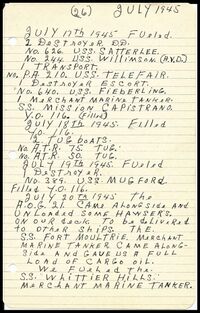 (26) JULY 1945
JULY 17th 1945 FUELED.
2 DESTROYER D.D.
No. 626. U.S.S. SATTERLEE.
No. 244. U.S.S. WILLIMSON. (A.V.D.)
1 TRANSPORT.
No. P.A. 210. U.S.S. TELEFAIR.
1 DESTROYER ESCORT.
No. 640. U.S.S. FIEBERLING.
1 MERCHANT MARINE TANKER.
S.S. MISSION CAPISTRANO.
Y.O. 116. (Filled)
JULY 18th 1945 Filled
Y.O. 116.
2 TUG BOATS.
No. A.T.R. 75. TUG.
No. A.T.R. 50. TUG.
JULY 19th 1945 FUELED
1 DESTROYER.
No. 389. U.S.S. MUGFORD
Filled Y.O. 116.
JULY 20th 1945 THE
A.O.G. 21. CAME ALONGSIDE AND
UNLOADED SOME HAWSERS.
ON OUR DECK TO BE delivered
TO OTHER SHIPS. THE.
S.S. FORT MOULTRIE MERCHANT
MARINE TANKER CAME ALONG-
SIDE AND GAVE US A FULL
LOAD OF CARGO OIL.
WE FUELED THE.
S.S. "WHITTIER HILLS."
MERCHANT MARINE TANKER.